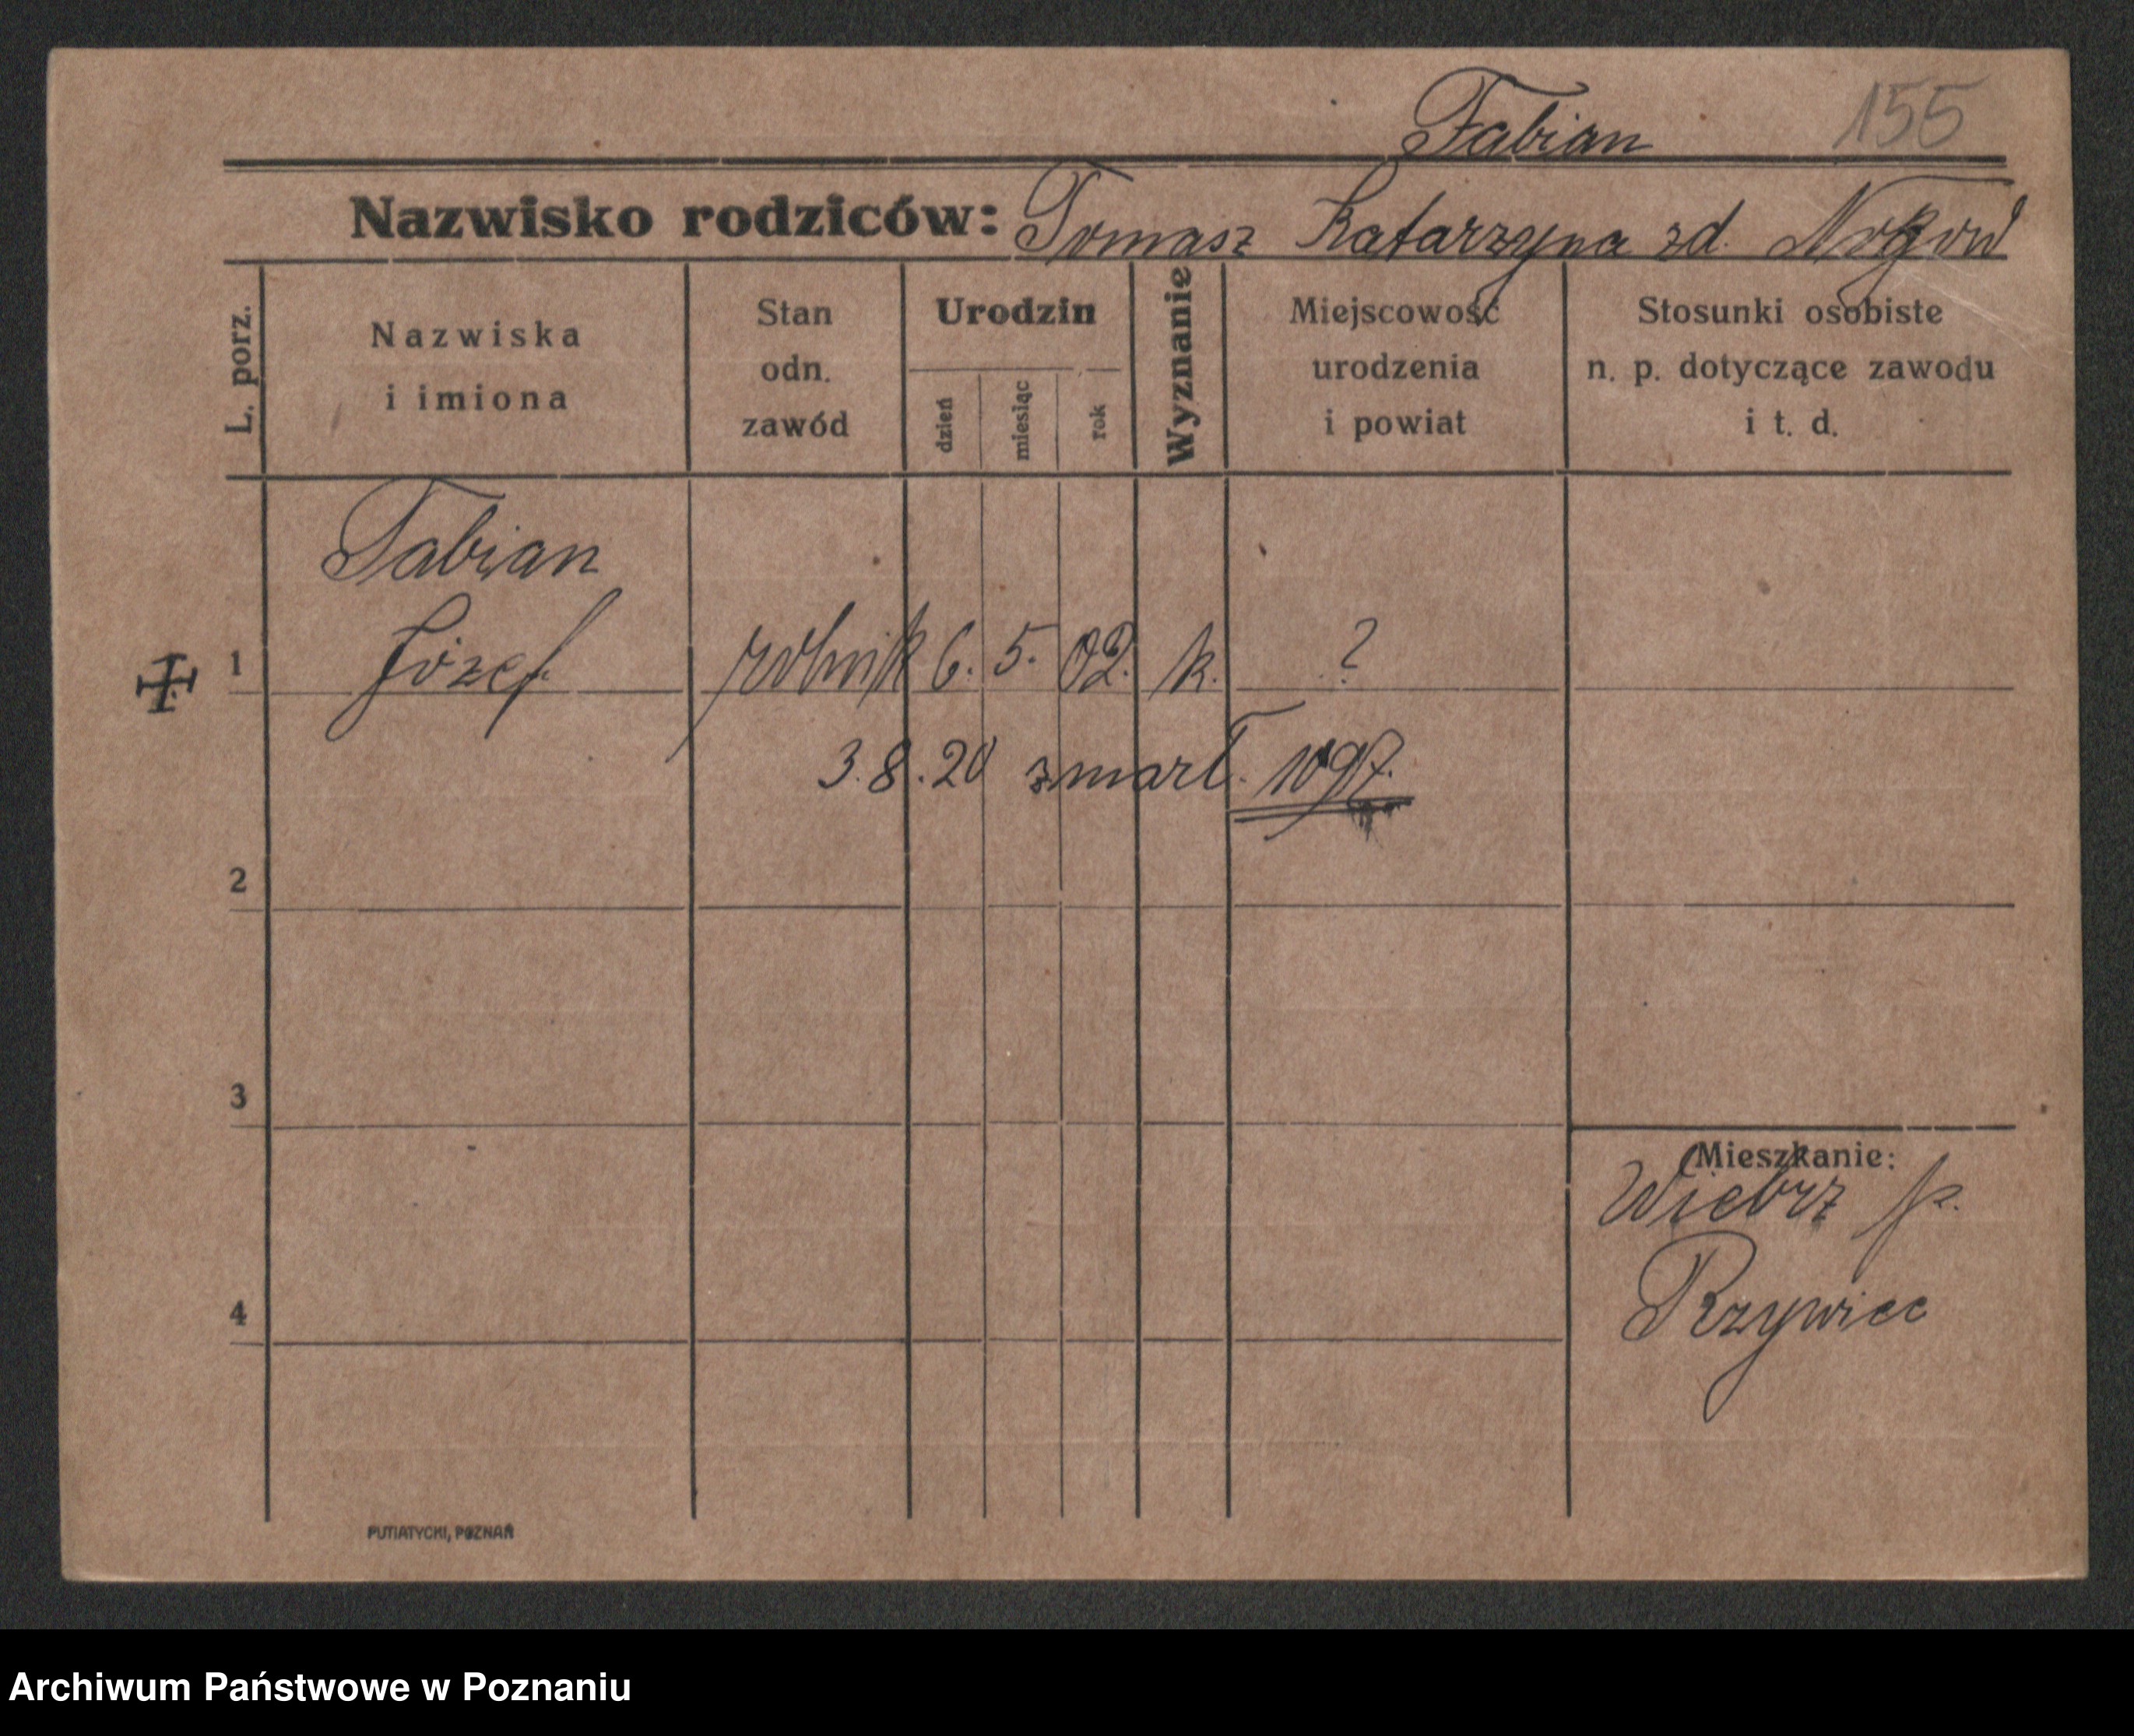 155
Fabian
Nazwisko rodziców: Tomasz Katarzyna zd.
L. porz.
Nazwiska
i imiona
Stan
odn.
zawód
Urodzin
dzień
miesiąc
rok
Wyznanie
Miejscowość
urodzenia
i powiat
Stosunki osobiste
n. p. dotyczące zawodu
i t. d.
Fabian
1 Józef rolnik 6. 5. 02. k. ?
3.8.20 zmarł.
2
3
4
Mieszkanie:
p.
PUTIATYCKI, POZNAŃ
Archiwum Państwowe w Poznaniu